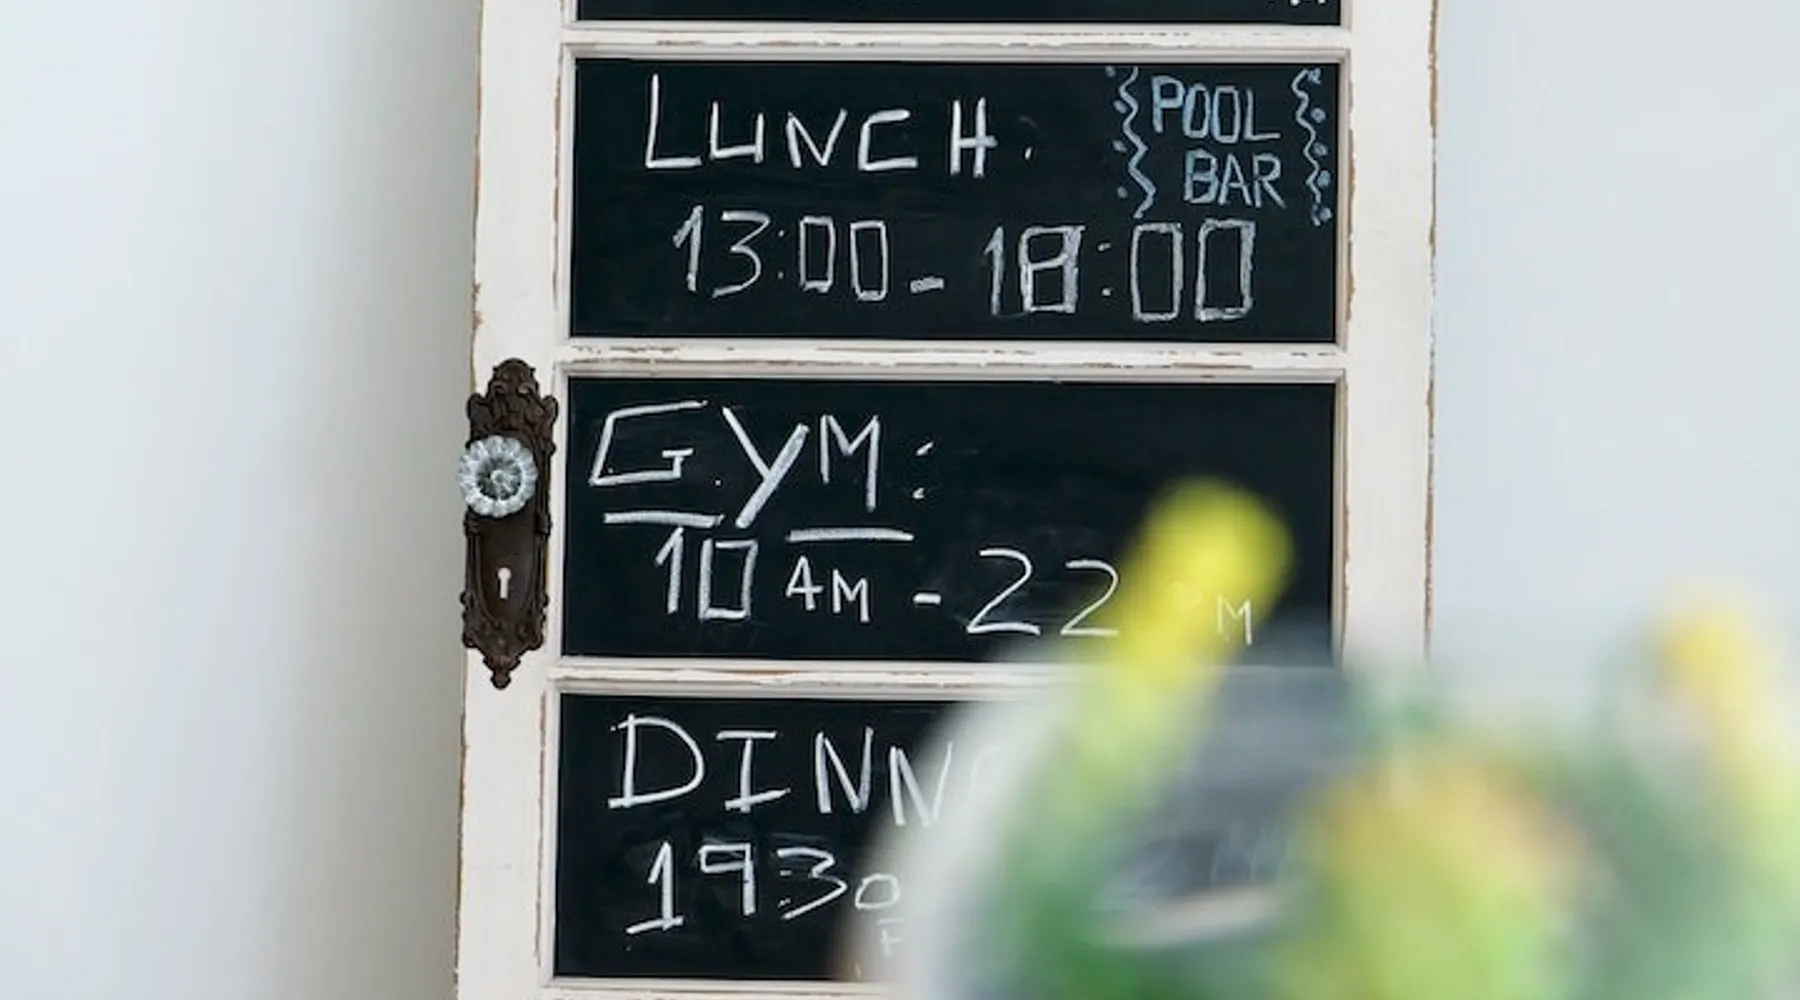 LUNCH. POOL
BAR
13:00 - 18:00
GYM:
10 AM - 22 PM
DINN
1930